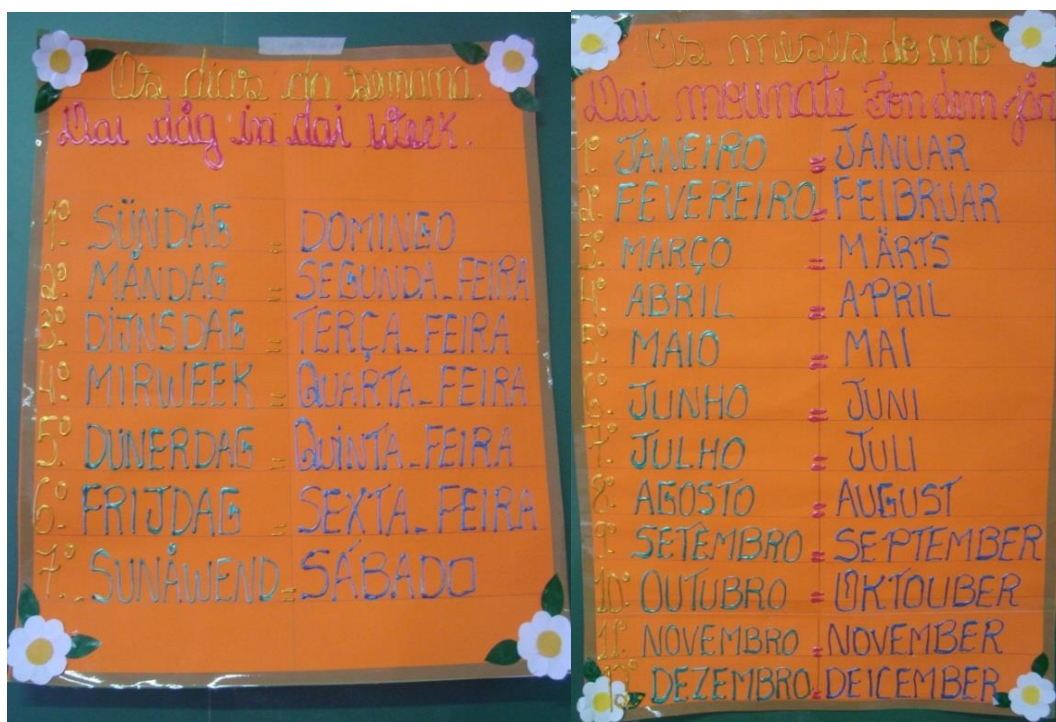 Os dias da semana.
Dai dåg in dai Week.
1º. SÜNDAG = DOMINGO
2º. MÅNDAG = SEGUNDA-FEIRA
3º. DIJNSDAG = TERÇA-FEIRA
4º. MIRWEEK = QUARTA-FEIRA
5º. DUNERDAG = QUINTA-FEIRA
6º. FRIJDAG = SEXTA-FEIRA
7º. SUNÅWEND = SÁBADO
Os meses do ano
Dai mounate fon dem jår
1º. JANEIRO = JANUAR
2º. FEVEREIRO = FEIBRUAR
3º. MARÇO = MÄRTS
4º. ABRIL = APRIL
5º. MAIO = MAI
6º. JUNHO = JUNI
7º. JULHO = JULI
8º. AGOSTO = AUGUST
9º. SETÊMBRO = SEPTEMBER
10º. OUTUBRO = OKTOUBER
11º. NOVEMBRO = NOVEMBER
12º. DEZEMBRO = DEICEMBER